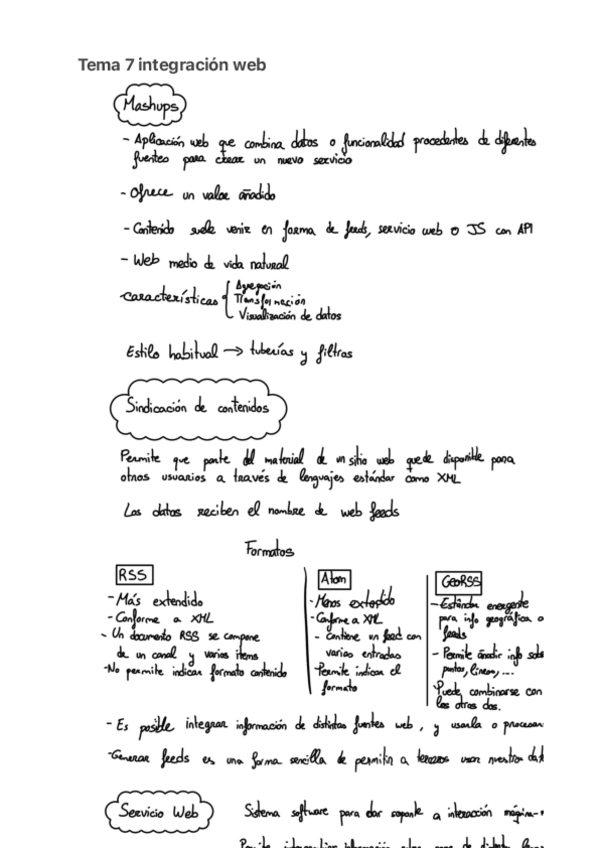 Tema 7 integración web
Mashups
- Aplicación web que combina datos o funcionalidad procedentes de diferentes
fuentes para crear un nuevo servicio
- Ofrece un valor añadido
- Contenido suele venir en forma de feeds, servicio web o JS con API
- Web medio de vida natural
características { Agregación
Transformación
Visualización de datos
Estilo habitual → tuberías y filtros
Sindicación de contenidos
Permite que parte del material de un sitio web quede disponible para
otros usuarios a través de lenguajes estándar como XML
Los datos reciben el nombre de web feeds
Formatos
RSS
- Más extendido
- Conforme a XML
- Un documento RSS se compone
de un canal y varios items
- No permite indicar formato contenido
Atom
- Menos extendido
- Conforme a XML
- Contiene un feed con
varias entradas
Permite indicar el
formato
GeoRSS
- Estándar emergente
para info geográfica a
feeds
- Permite añadir info sobre
puntos, líneas, ...
Puede combinarse con
los otros dos.
- Es posible integrar información de distintas fuentes web, y usarla o procesar
- Generar feeds es una forma sencilla de permitir a terceros usar nuestros dat
Servicio Web
Sistema software para dar soporte a interacción máquina-